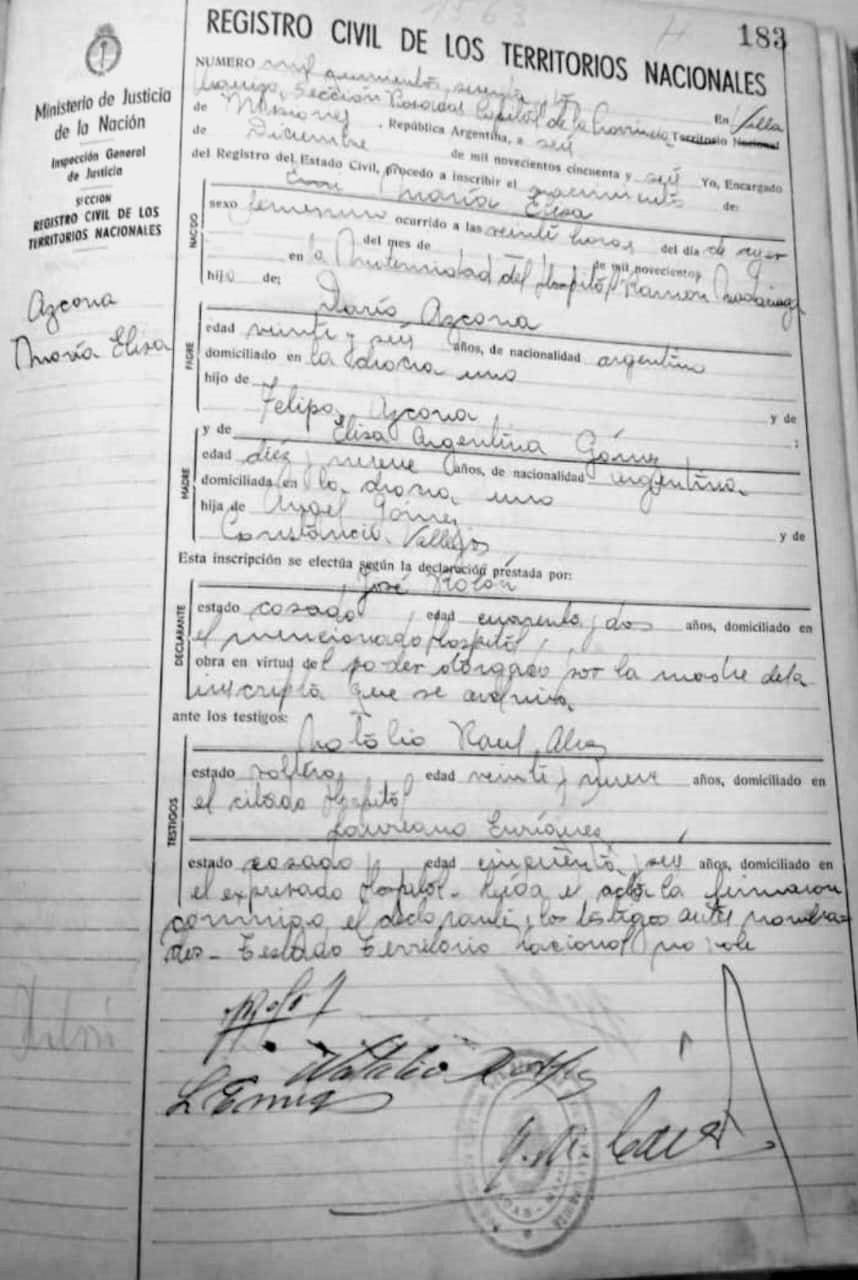 183
REGISTRO CIVIL DE LOS TERRITORIOS NACIONALES
Ministerio de Justicia
de la Nación
Inspección General
de Justicia
SECCION
REGISTRO CIVIL DE LOS
TERRITORIOS NACIONALES
Azcona
María Elisa
NUMERO mil quinientos sesenta En Villa
Sección Posadas Capital de la Provincia Territorio Nacional
de Misiones, República Argentina, a seis
de Diciembre de mil novecientos cincuenta y seis Yo, Encargado
del Registro del Estado Civil, procedo a inscribir el nacimiento de:
NACIDO
María Elisa
sexo femenino ocurrido a las veinte horas del día de ayer
del mes de de mil novecientos
en la Maternidad del Hospital Ramón Madariaga
hija de:
PADRE
Darío Azcona
edad veinte y seis años, de nacionalidad argentino
domiciliado en la chacra uno
hijo de y de
Felipa Azcona ;
MADRE
y de Elisa Argentina Gómez
edad diez y nueve años, de nacionalidad argentina
domiciliada en la chacra uno
hija de Angel Gómez y de
Constancia Vallejos
Esta inscripción se efectúa según la declaración prestada por:
DECLARANTE
José
estado casado, edad cuarenta y dos años, domiciliado en
el mencionado Hospital,
obra en virtud del poder otorgado por la madre de la
inscripta que se archiva
ante los testigos:
TESTIGOS
Natalio Raul
estado soltero, edad veinte y nueve años, domiciliado en
el citado Hospital
Laureano Enriques,
estado casado, edad cincuenta y seis años, domiciliado en
el expresado Hospital- Leída el acta la firmaron
conmigo, el declarante y los testigos antes nombra-
dos- Testado Territorio Nacional no vale
Natalio
L Enriq